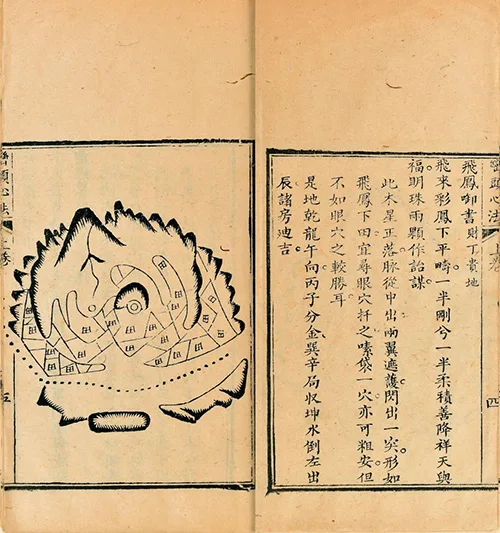 頭心法
四
飛鳳御書則丁貴地
飛來彩鳳下平疇一半剛兮一半柔積善降祥天與
福明珠兩顆作詒謀
此木星正落脉從中出兩翼遮護閃出一突形如
飛鳳下田宜尋眼穴扦之嗉袋一穴亦可粗安但
不如眼穴之較勝耳
是地乾龍午向丙子分金巽辛局收坤水倒左出
辰諸房迪吉
田
田
田
田
田
田
田
田
田
田
田
頭心法
上卷
五